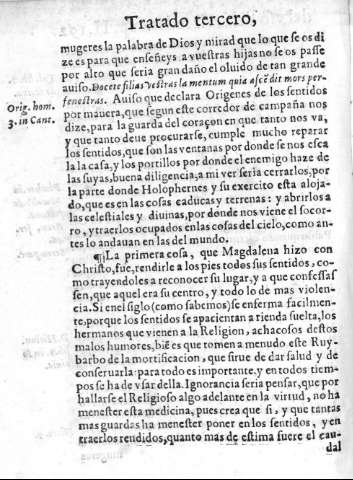 Tratado tercero,
mugeres la palabra de Dios y mirad que lo que se os di
ze es para que enseñeys a vuestras hijas no se os passe
por alto que seria gran daño el oluido de tan grande
auiso. Docete filias vestras lamentum quia ascēdit mors per
fenestras. Auiso que declara Origenes de los sentidos
Orig. hom.
3. in Cant.
por mauera, que segun este corredor de campaña nos
dize, para la guarda del coraçon en que tanto nos va,
y que tanto deue procurarse, cumple mucho reparar
los sentidos, que son las ventanas por donde se nos esca
la la casa, y los portillos por donde el enemigo haze de
las suyas, buena diligencia; a mi ver seria cerrarlos, por
la parte donde Holophernes y su exercito esta aloja-
do, que es en las cosas caducas y terrenas: y abrirlos a
las celestiales y diuinas, por donde nos viene el socor-
ro, y traerlos ocupados en las cosas del cielo, como an-
tes lo andauan en las del mundo.
¶La primera cosa, que Magdalena hizo con
Christo, fue, rendirle a los pies todos sus sentidos, co-
mo trayendoles a reconocer su lugar, y a que confessas
sen, que aquel era su centro, y todo lo de mas violen-
cia. Si en el siglo (como sabemos) se enferma facilmen-
te, porque los sentidos se apacientan a rienda suelta, los
hermanos que vienen a la Religion, achacosos destos
malos humores, biē es que tomen a menudo este Ruy-
barbo de la mortificacion, que sirue de dar salud y de
conseruarla: para todo es importante, y en todos tiem-
pos se ha de vsar della. Ignorancia seria pensar, que por
hallarse el Religioso algo adelante en la virtud, no ha
menester esta medicina, pues crea que si, y que tantas
mas guardas ha menester poner en los sentidos, y en
traerlos rendidos, quanto mas de estima fuere el cau-
dal